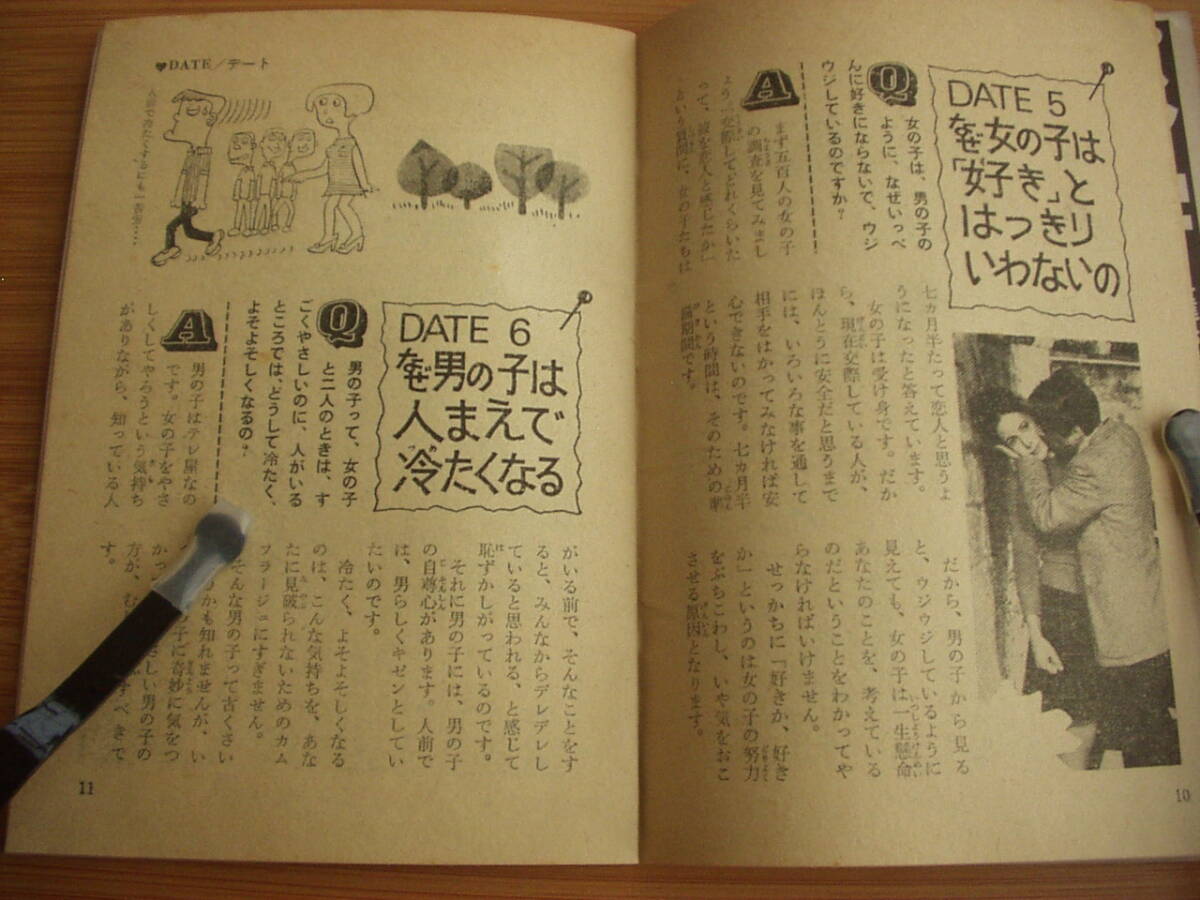 DATE 5
なぜ女の子は
「好き」と
はっきり
いわないの
Q
女の子は、男の子の
ように、なぜいっぺ
んに好きにならないで、ウジ
ウジしているのですか?
A
まず五百人の女の子
の調査を見てみまし
ょう。「交際してどれくらいた
って、彼を恋人と感じたか」
という質問に、女の子たちは
七カ月半たって恋人と思うよ
うになったと答えています。
女の子は受け身です。だか
ら、現在交際している人が、
ほんとうに安全だと思うまで
には、いろいろな事を通して
相手をはかってみなければ安
心できないのです。七カ月半
という時間は、そのための準
備期間です。
だから、男の子から見る
と、ウジウジしているように
見えても、女の子は一生懸命
あなたのことを、考えている
のだということをわかってや
らなければいけません。
せっかちに「好きか、好き
か」というのは女の子の努力
をぶちこわし、いや気をおこ
させる原因となります。
10
♥DATE/デート
人前で冷たくするにも一苦労…
DATE 6
なぜ男の子は
人まえで
冷たくなる
Q
男の子って、女の子
と二人のときは、す
ごくやさしいのに、人がいる
ところでは、どうして冷たく、
よそよそしくなるの?
A
男の子はテレ屋なの
です。女の子をやさ
しくしてやろうという気持ち
がありながら、知っている人
がいる前で、そんなことをす
ると、みんなからデレデレし
ていると思われる、と感じて
恥ずかしがっているのです。
それに男の子には、男の子
の自尊心があります。人前で
は、男らしくキゼンとしてい
たいのです。
冷たく、よそよそしくなる
のは、こんな気持ちを、あな
たに見破られないためのカム
フラージュにすぎません。
そんな男の子って古くさい
のかも知れませんが、い
の子に奇妙に気をつ
かっ さしい男の子の
方が、む すべきで
す。
11